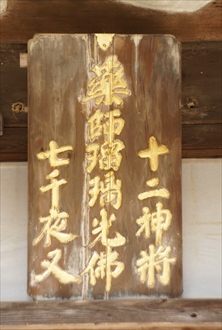 十二神将
薬師瑠璃光佛
七千夜叉